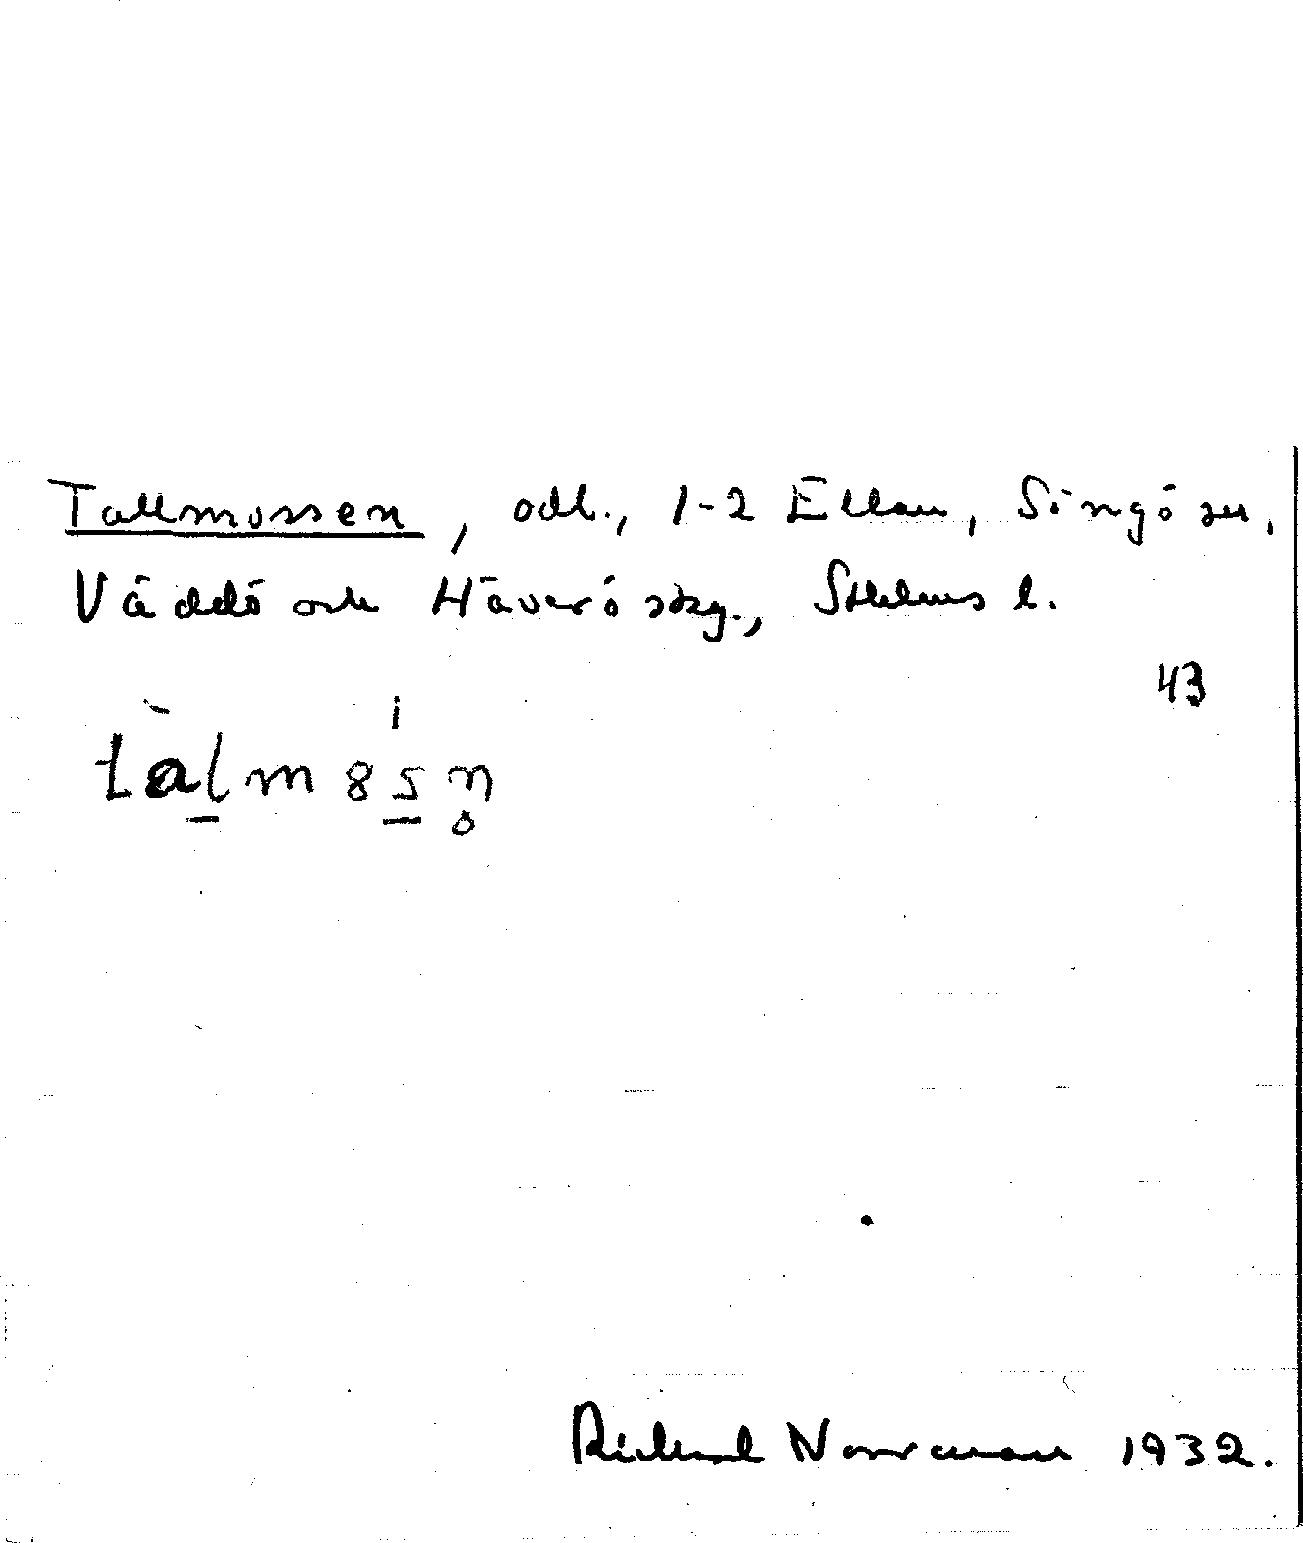 Tallmossen, odl., 1-2 Ellan, Singö sn,
Väddö och Häverö skg., Sthlms l.
43
tàlmȣsn̥
Richard Norrman 1932.